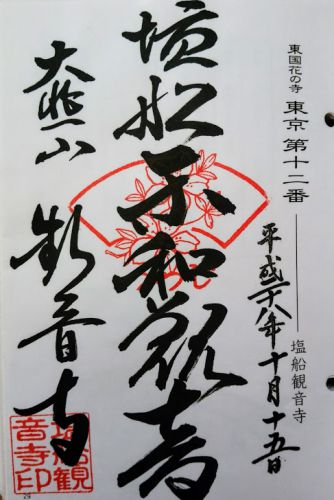 東国花の寺 東京第十二番 塩船観音寺
平成二十八年十月十五日
塩船平和観音
大悲山 観音寺
塩船観音寺印